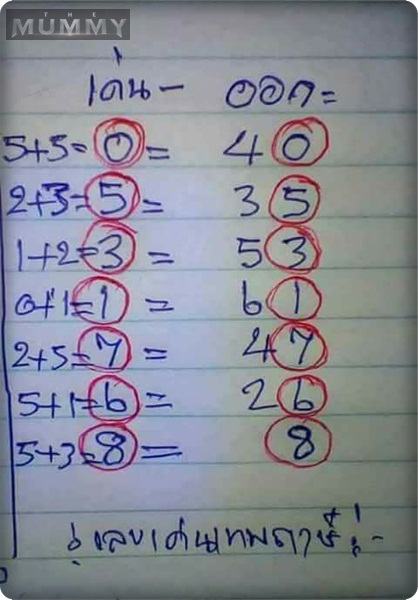 THE
MUMMY
เด่น - ออก =
5+5=0= 40
2+3=5= 35
1+2=3= 53
0+1=1= 61
2+5=7= 47
5+1=6= 26
5+3=8= 8
เลขเด่น